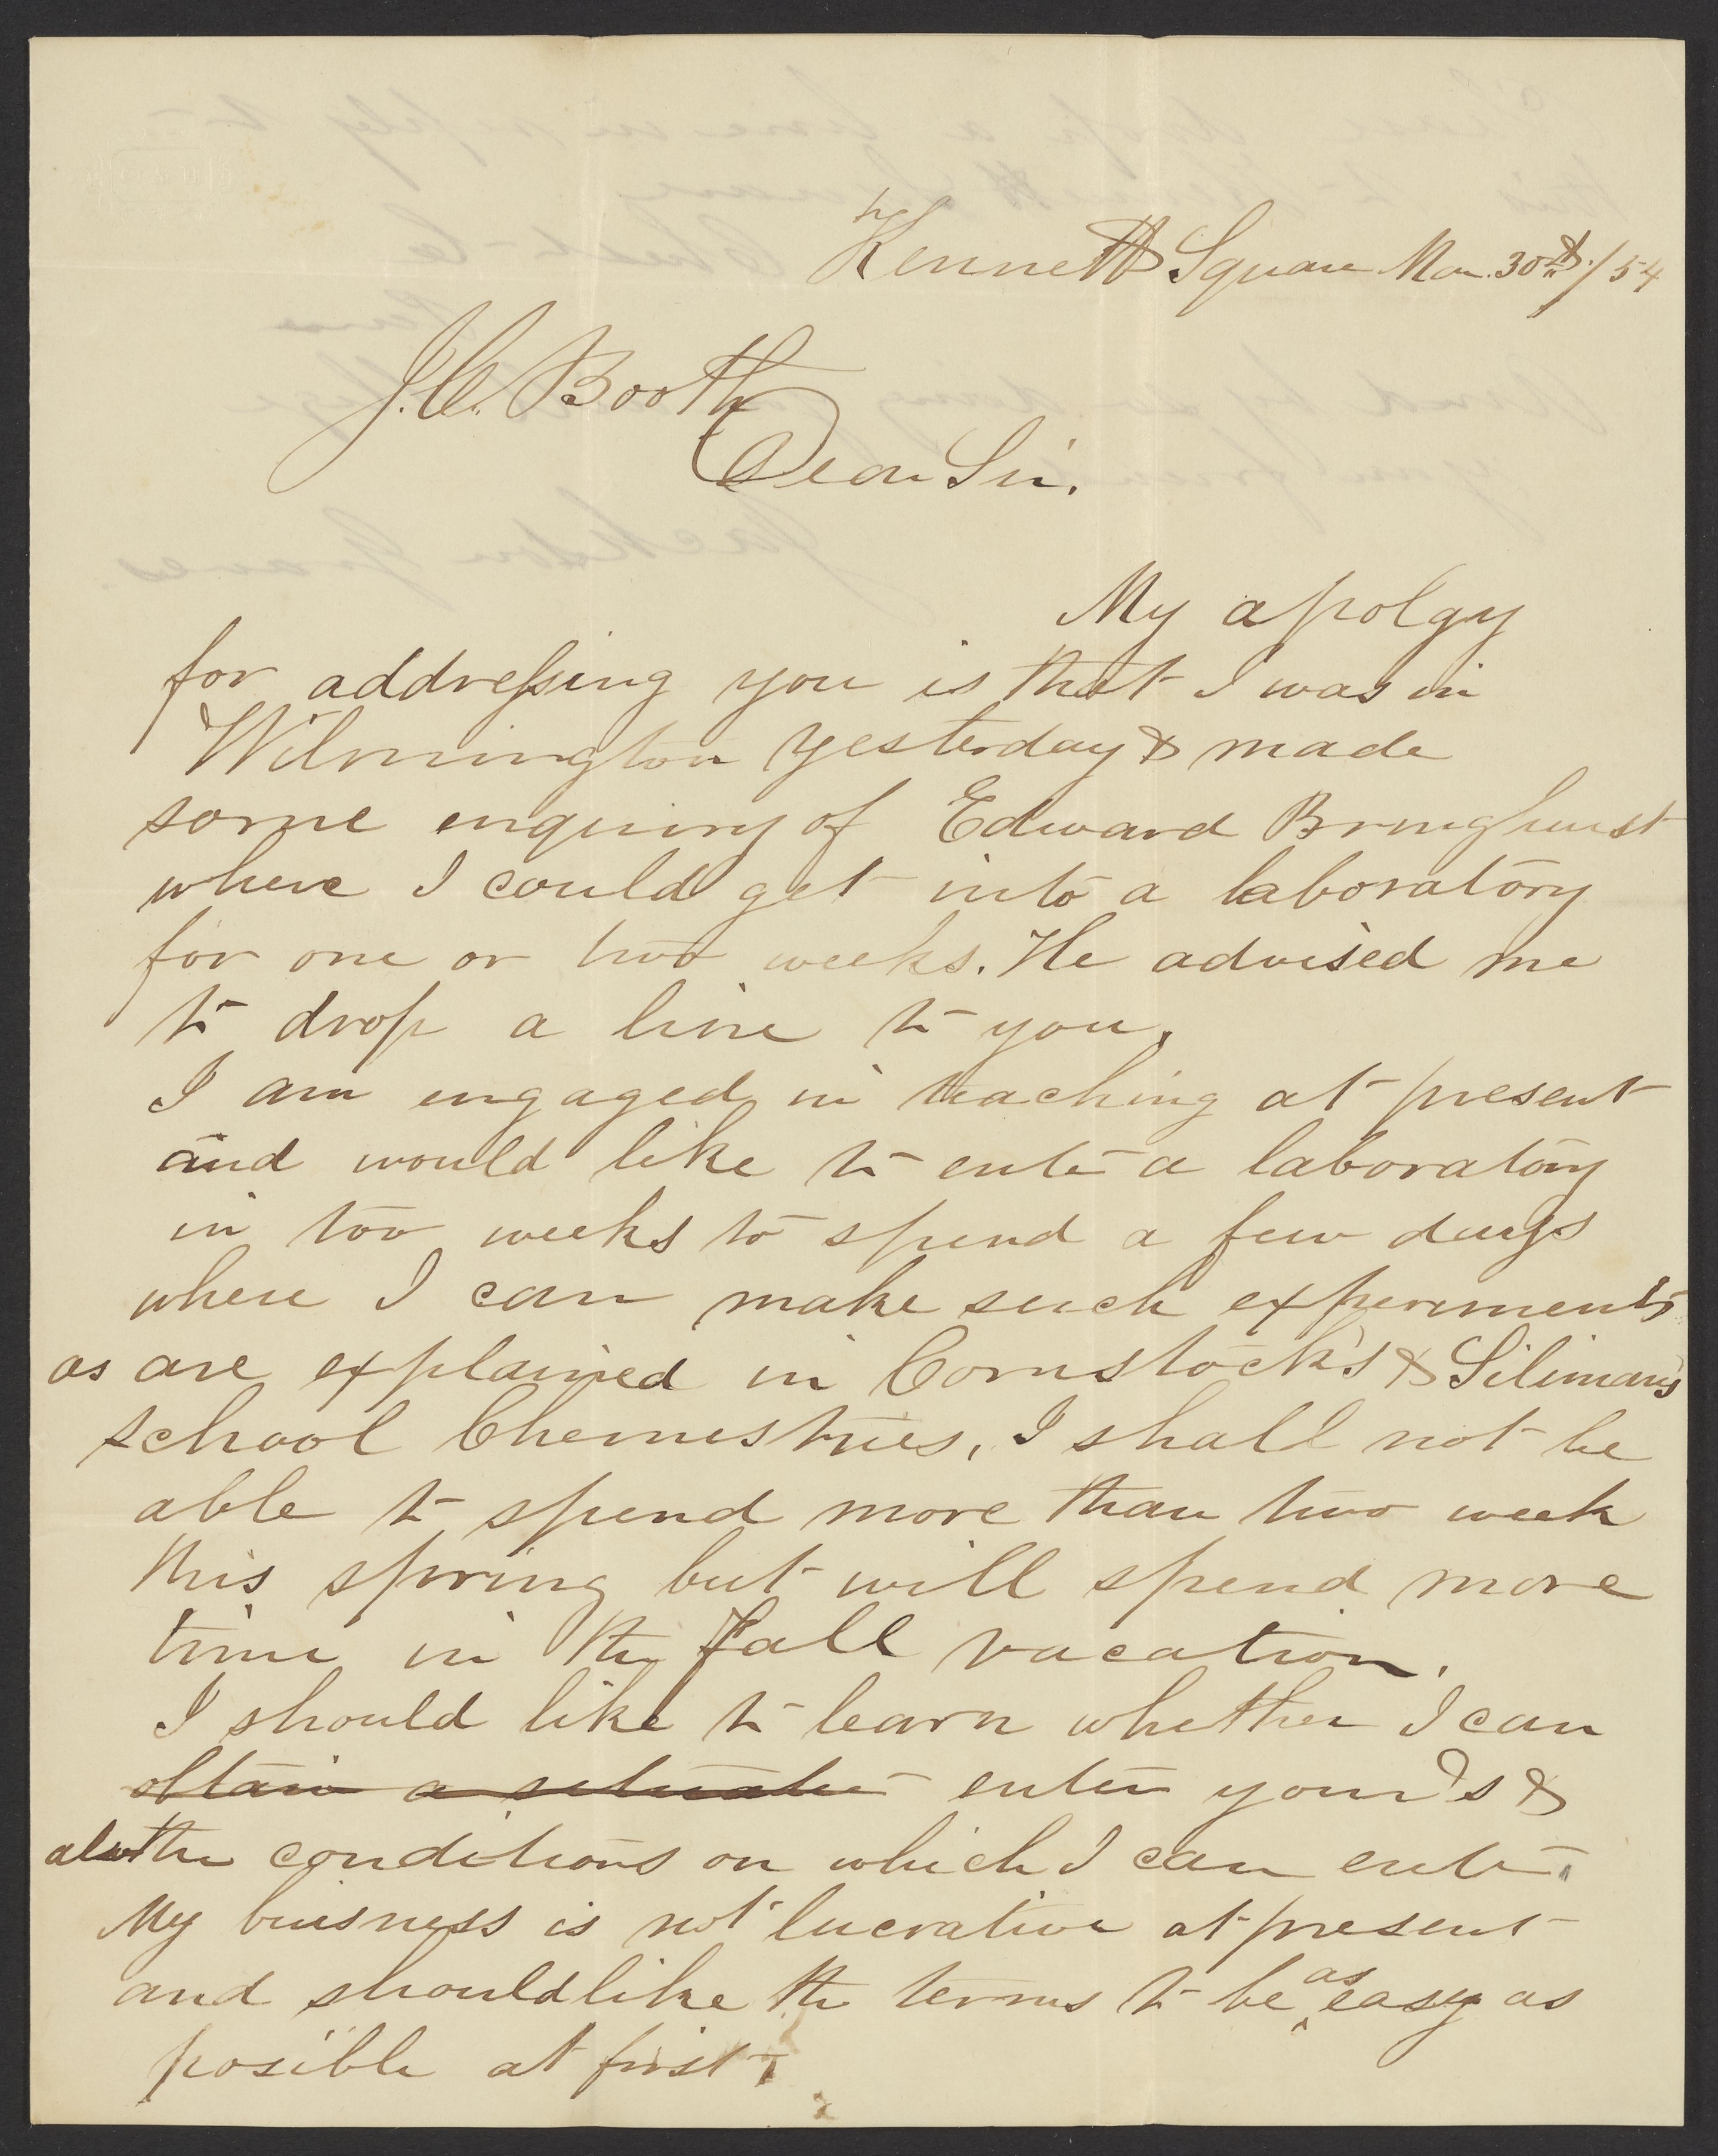 Kennett Square Mar. 30th./54
J. C. Booth
Dear Sir.
My apolgy
for addressing you is that I was in
Wilmington yesterday & made
some enquiry of Edward Bringhurst
where I could get into a laboratory
for one or two weeks. He advised me
to drop a line to you.
I am engaged in teaching at present
and would like to enter a laboratory
in too weeks to spend a few days
where I can make such experiments
as are explained in Comstock's & Siliman's
school Chemestries, I shall not be
able to spend more than two week
this spring but will spend more
time in the fall vacation.
I should like to learn whether I can
obtain a situation enter your's &
also the conditions on which I can enter.
My buisness is not lucrative at present
and should like the terms to be as easy as
posible at first.